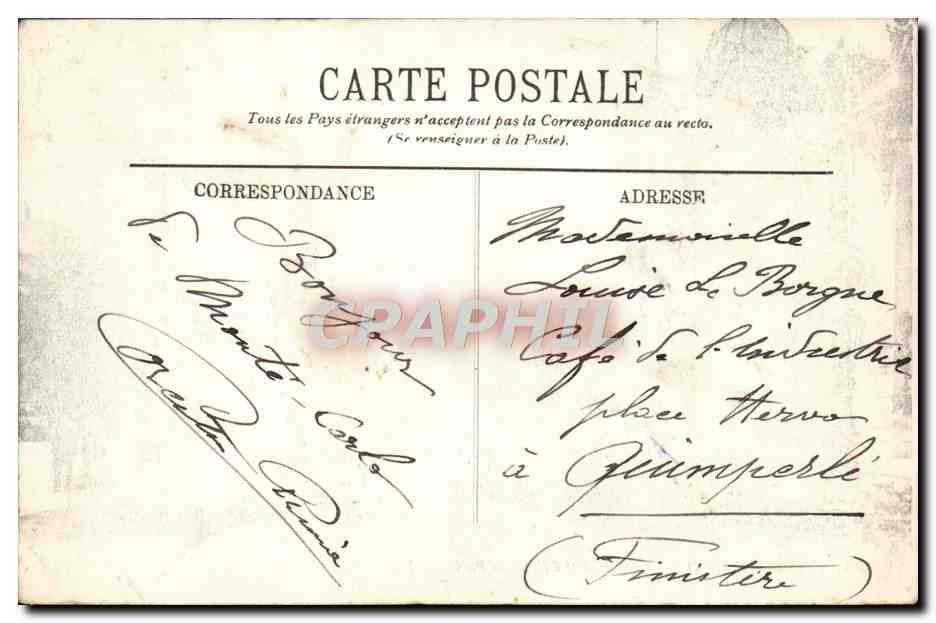 CARTE POSTALE
Tous les Pays étrangers n'acceptent pas la Correspondance au recto.
(Se renseigner à la Poste).
CORRESPONDANCE
Bonjour
de Monte-Carlo
ADRESSE
Mademoiselle
Louise Le Borgne
Café de l'Industrie
place Hervo
à Quimperlé
(Finistère)
CPAPHIL